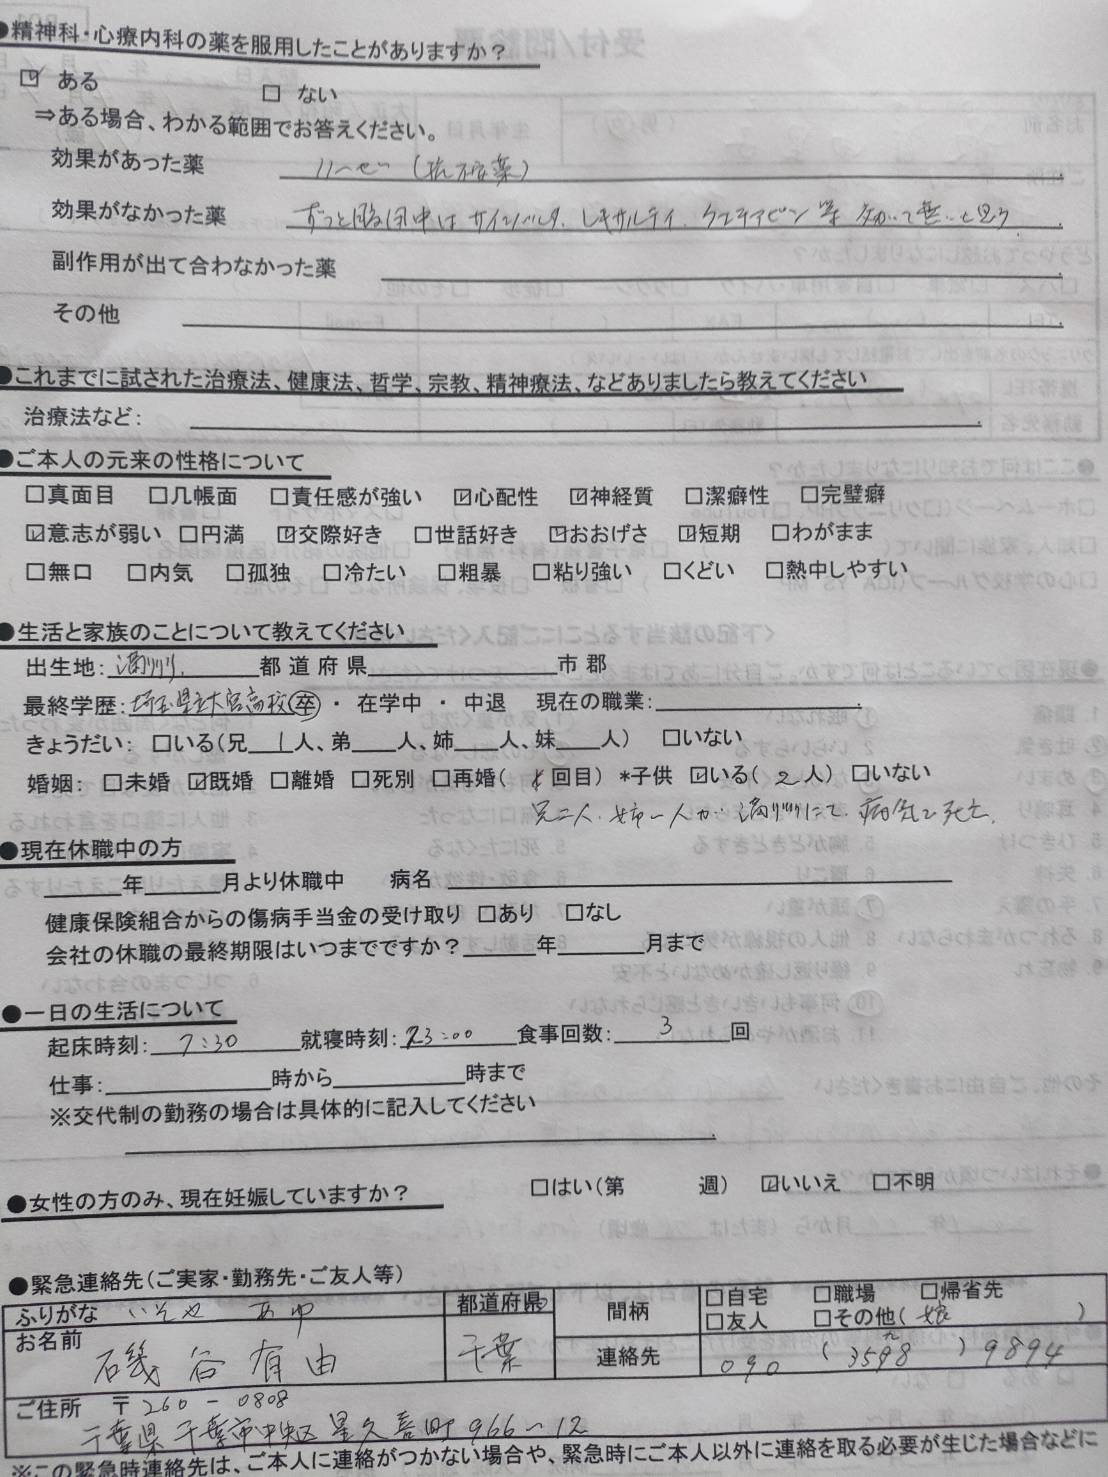 ●精神科・心療内科の薬を服用したことがありますか?
☑ ある □ ない
⇒ある場合、わかる範囲でお答えください。
効果があった薬 リーゼ (抗不安薬)
効果がなかった薬 ずっと服用中は サインバルタ、レキサルティ、クエチアピン 等 効いて無いと思う
副作用が出て合わなかった薬
その他
●これまでに試された治療法、健康法、哲学、宗教、精神療法、などありましたら教えてください
治療法など:
●ご本人の元来の性格について
□真面目 □几帳面 □責任感が強い ☑心配性 ☑神経質 □潔癖性 □完璧癖
☑意志が弱い □円満 ☑交際好き □世話好き ☑おおげさ ☑短期 □わがまま
□無口 □内気 □孤独 □冷たい □粗暴 □粘り強い □くどい □熱中しやすい
●生活と家族のことについて教えてください
出生地: 満州 都 道 府 県 市 郡
最終学歴: 埼玉県立大宮高校 卒 ・ 在学中 ・ 中退 現在の職業:
きょうだい: □いる(兄 1 人、弟 人、姉 人、妹 人) □いない
婚姻: □未婚 ☑既婚 □離婚 □死別 □再婚( 回目) *子供 ☑いる( 2 人) □いない
兄二人、姉一人が 満州にて 病気で死亡
●現在休職中の方
年 月より休職中 病名
健康保険組合からの傷病手当金の受け取り □あり □なし
会社の休職の最終期限はいつまでですか? 年 月まで
●一日の生活について
起床時刻: 7:30 就寝時刻: 23:00 食事回数: 3 回
仕事: 時から 時まで
※交代制の勤務の場合は具体的に記入してください
●女性の方のみ、現在妊娠していますか? □はい(第 週) ☑いいえ □不明
●緊急連絡先(ご実家・勤務先・ご友人等)
ふりがな いそや あゆ 都道府県 間柄 □自宅 □職場 □帰省先
□友人 □その他( 娘 )
お名前 磯谷 有由 千葉 連絡先 090 ( 3598 ) 9894
ご住所 〒260-0808
千葉県 千葉市中央区 星久喜町 966-12
※この緊急時連絡先は、ご本人に連絡がつかない場合や、緊急時にご本人以外に連絡を取る必要が生じた場合などに